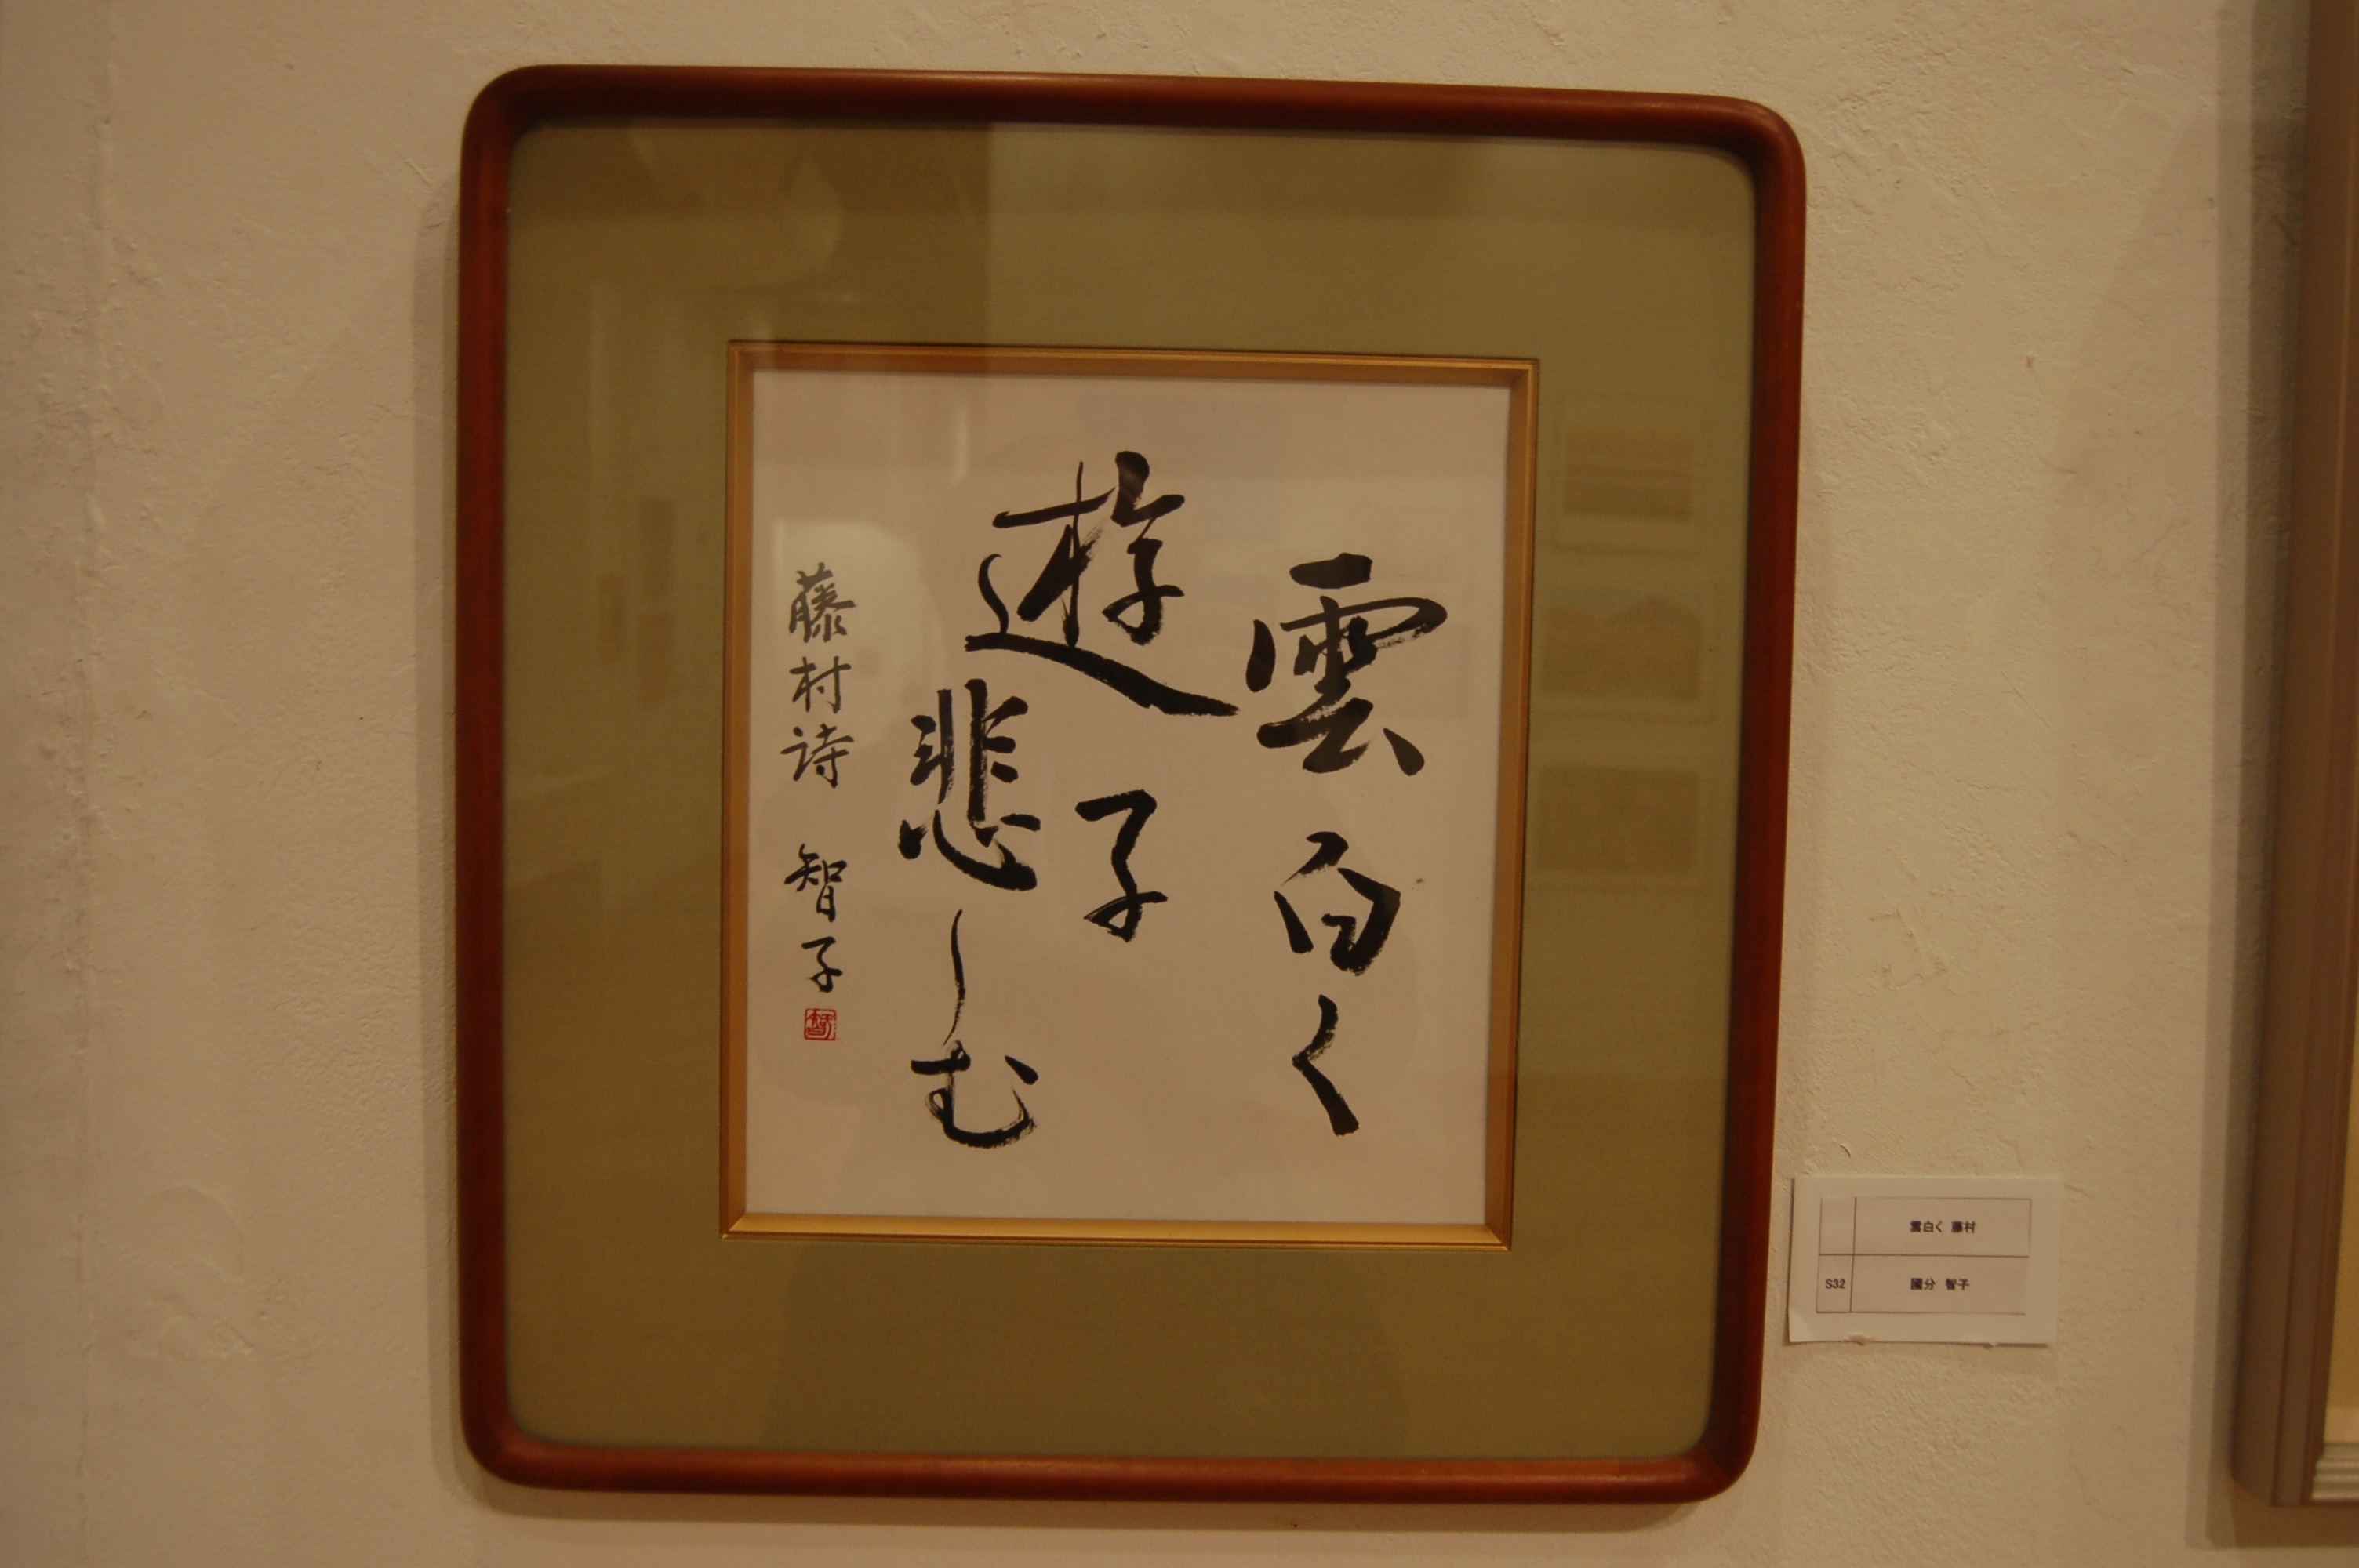 雲白く
遊子
悲しむ
藤村詩 智子
智
雲白く 藤村
S32 國分 智子